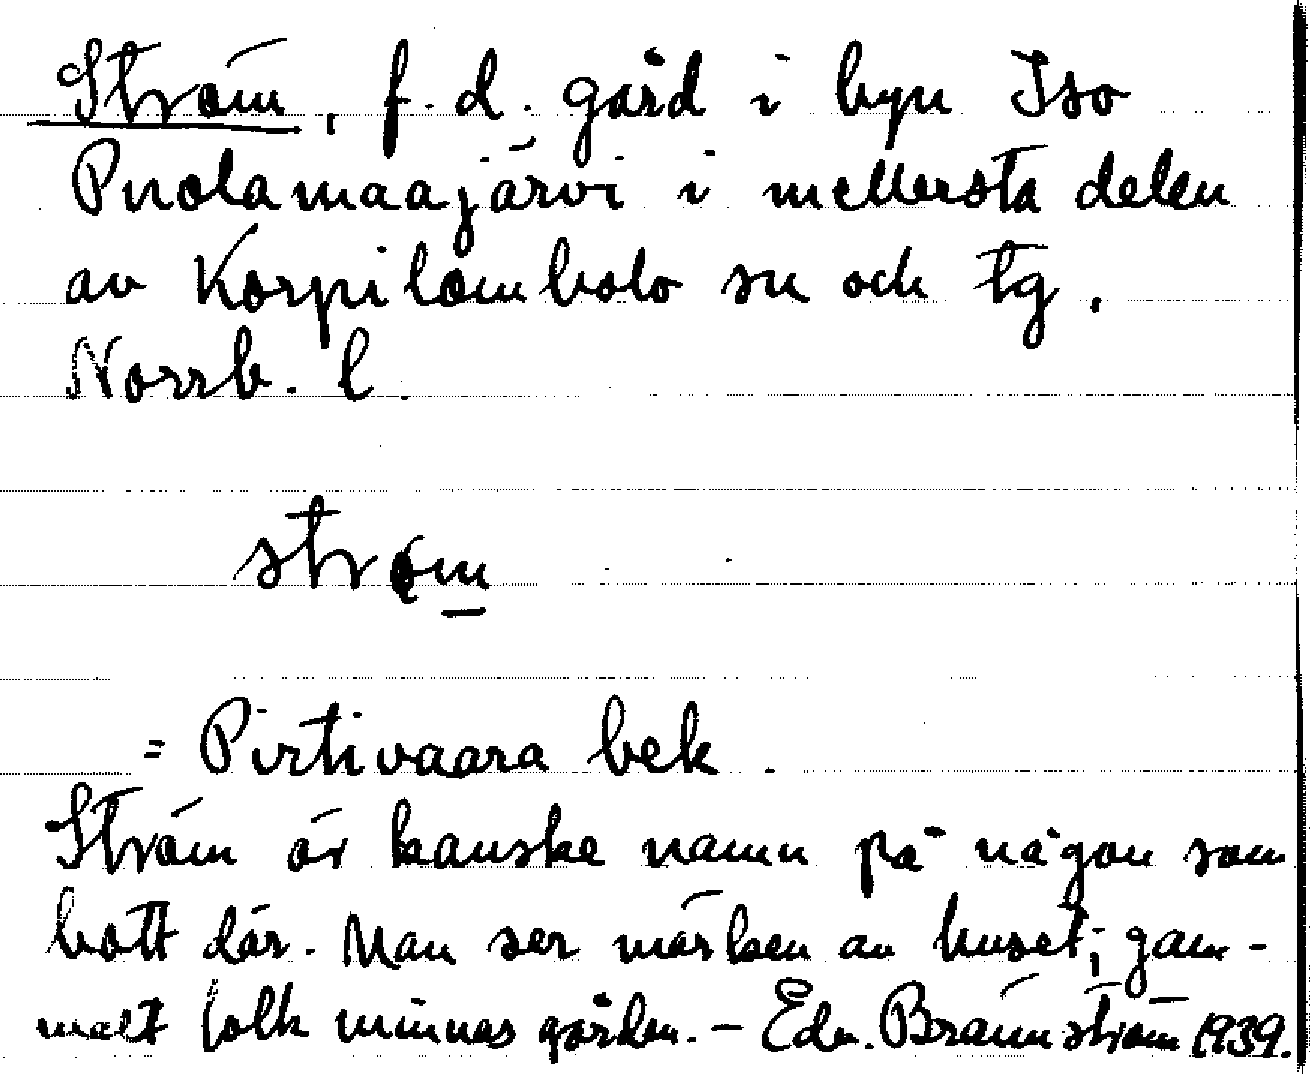 Ström, f. d. gård i byn Iso
Puolamaajärvi i mellersta delen
av Korpilombolo sn och tg,
Norrb. l.
strøm
= Pirtivaara bek.
Ström är kanske namn på någon som
bott där. Man ser märken av huset; gam-
malt folk minnas gården. – Edv. Brännström 1939.